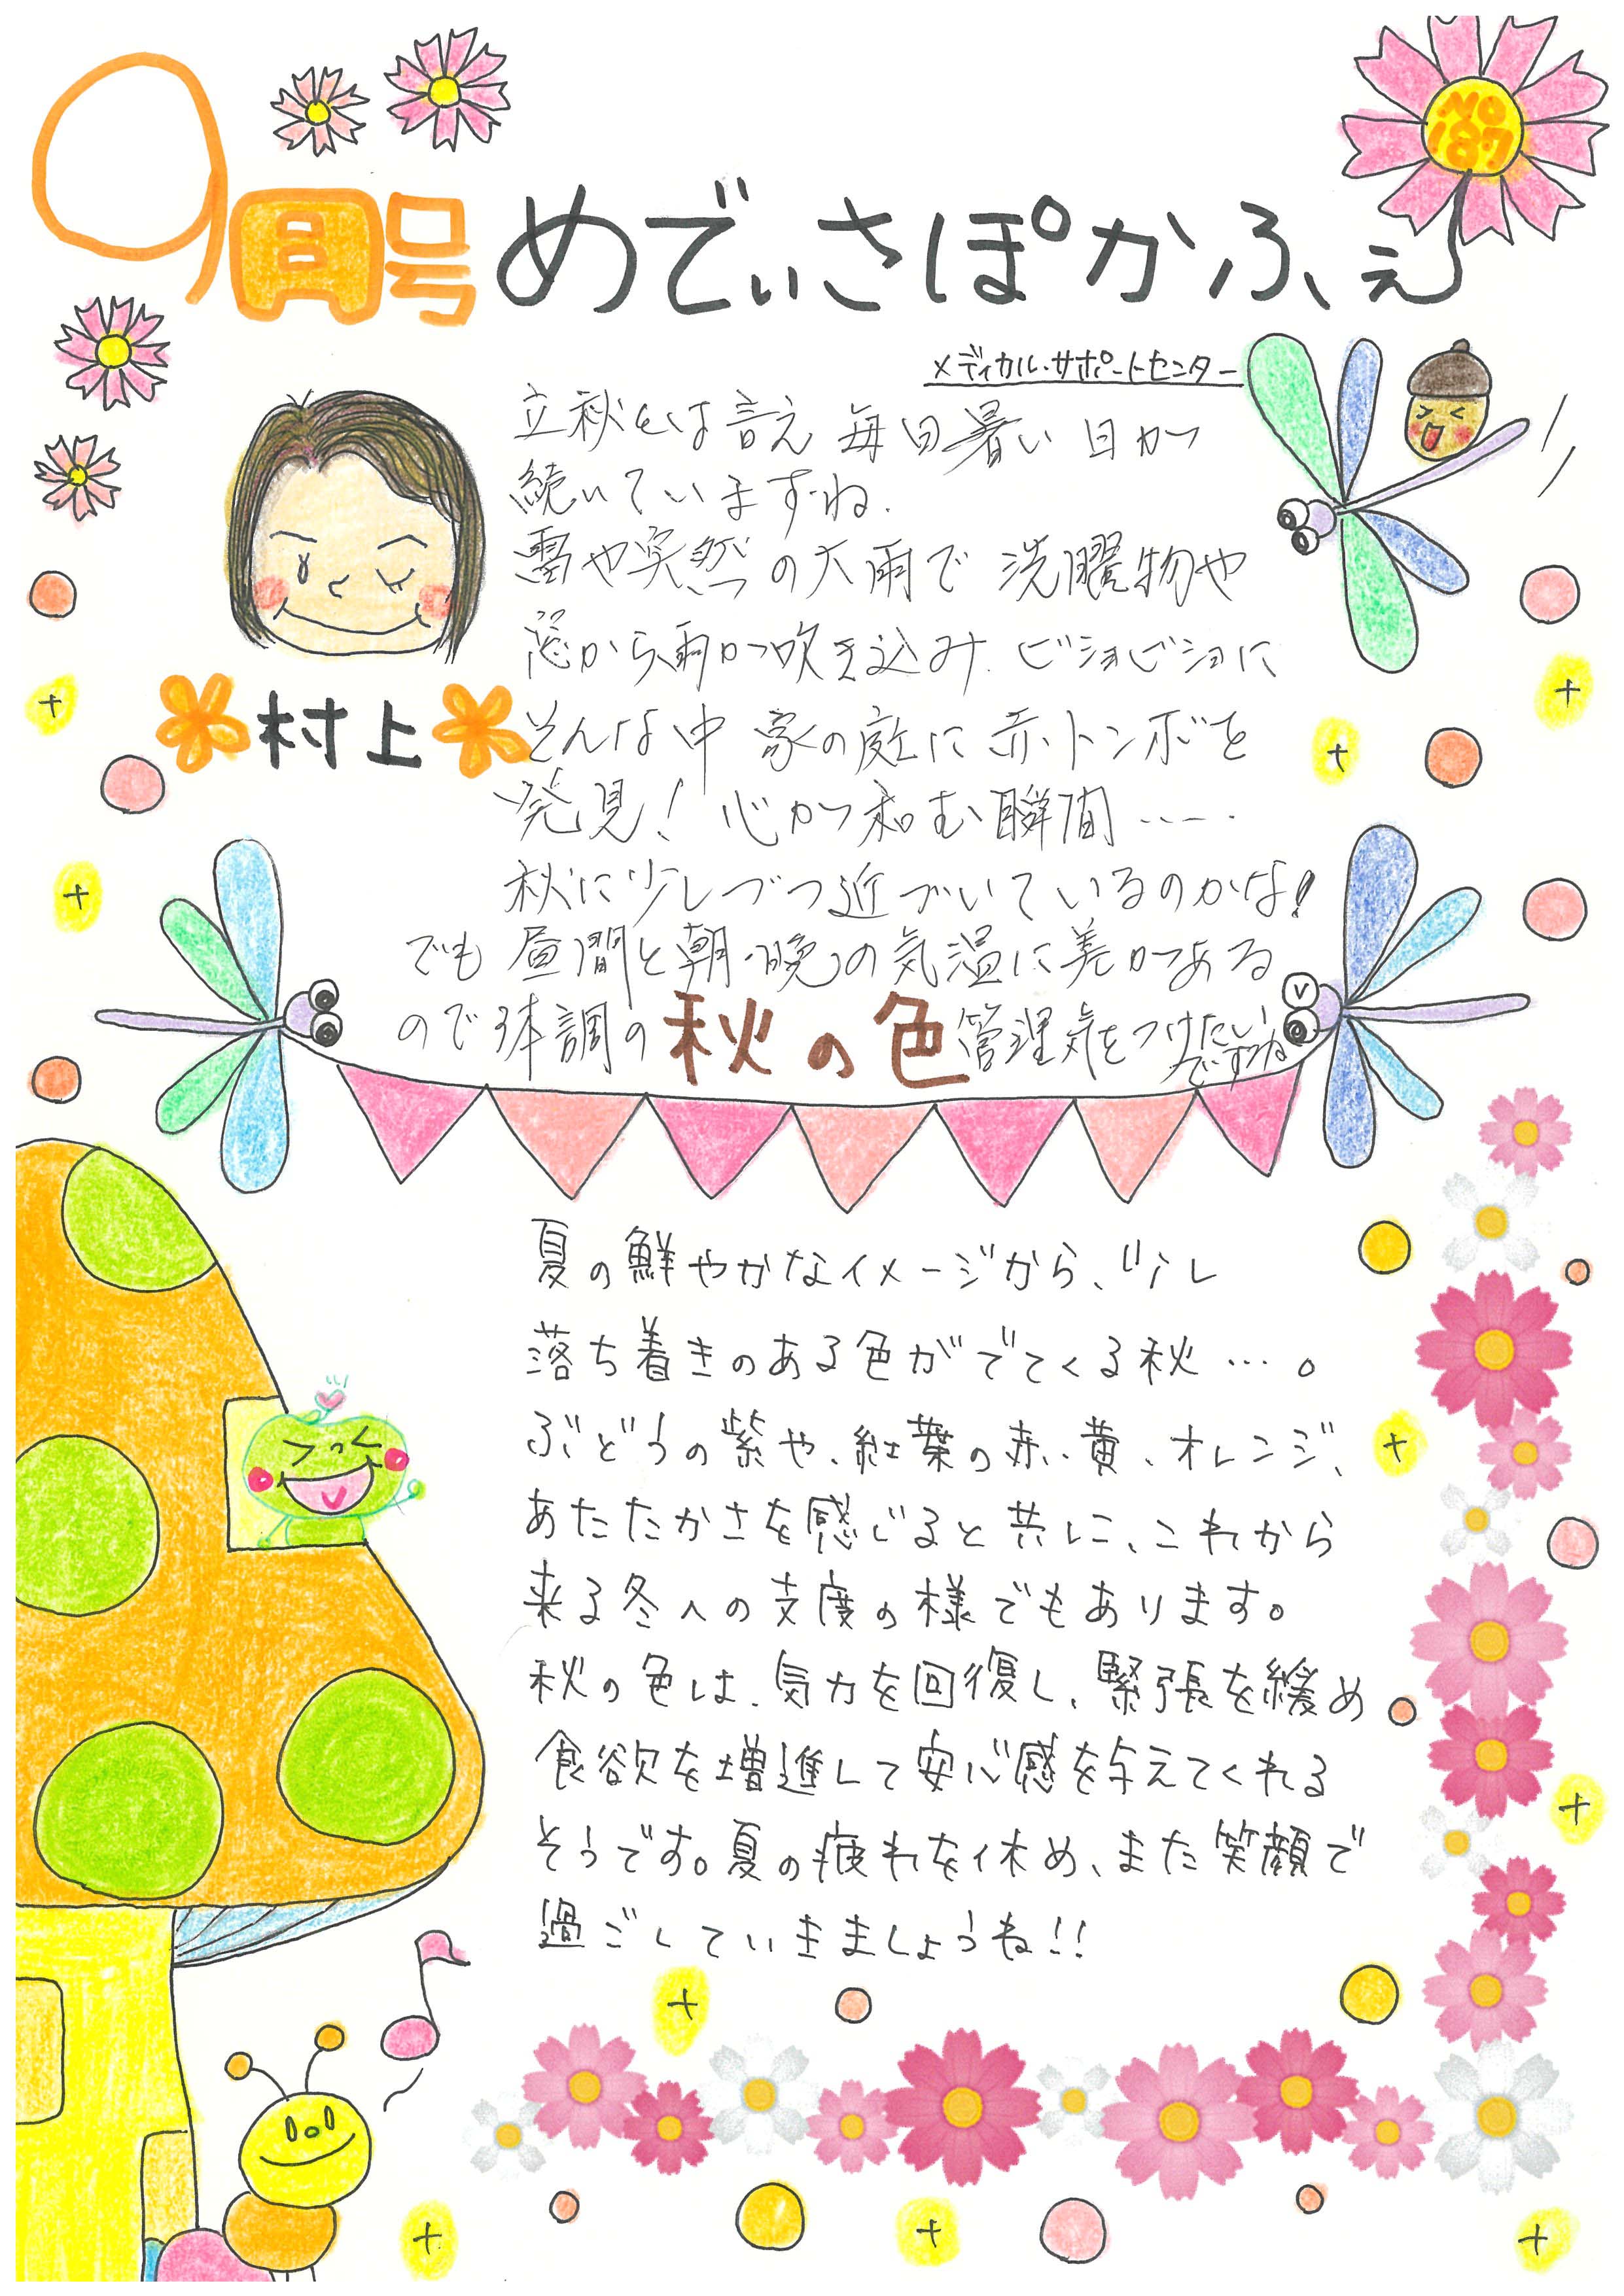 9月号 めでぃさぽかふぇ
No 187
メディカル・サポートセンター
村上
立秋とは言え 毎日暑い日が
続いていますね.
雷や突然の大雨で 洗濯物や
窓から雨が吹き込み. ビショビショに
そんな中 家の庭に赤トンボを
発見! 心が和む瞬間…..
秋に少しづつ近づいているのかな!
でも 昼間と朝・晩の気温に差がある
ので体調の管理気をつけたい
ですね
秋の色
夏の鮮やかなイメージから、少し
落ち着きのある色がでてくる秋…。
ぶどうの紫や、紅葉の赤、黄、オレンジ、
あたたかさを感じると共に、これから
来る冬への支度の様でもあります。
秋の色は、気力を回復し、緊張を緩め
食欲を増進して安心感を与えてくれる
そうです。夏の疲れを休め、また笑顔で
過ごしていきましょうね!!